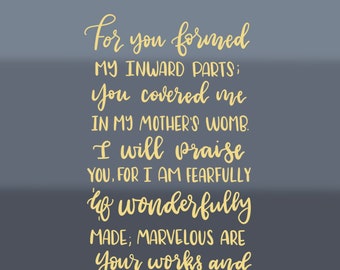 For you formed
MY INWARD PARTS;
You covered me
IN MY MOTHER'S WOMB.
I will praise
YOU, FOR I AM FEARFULLY
& wonderfully
MADE; MARVELOUS ARE
Your works and